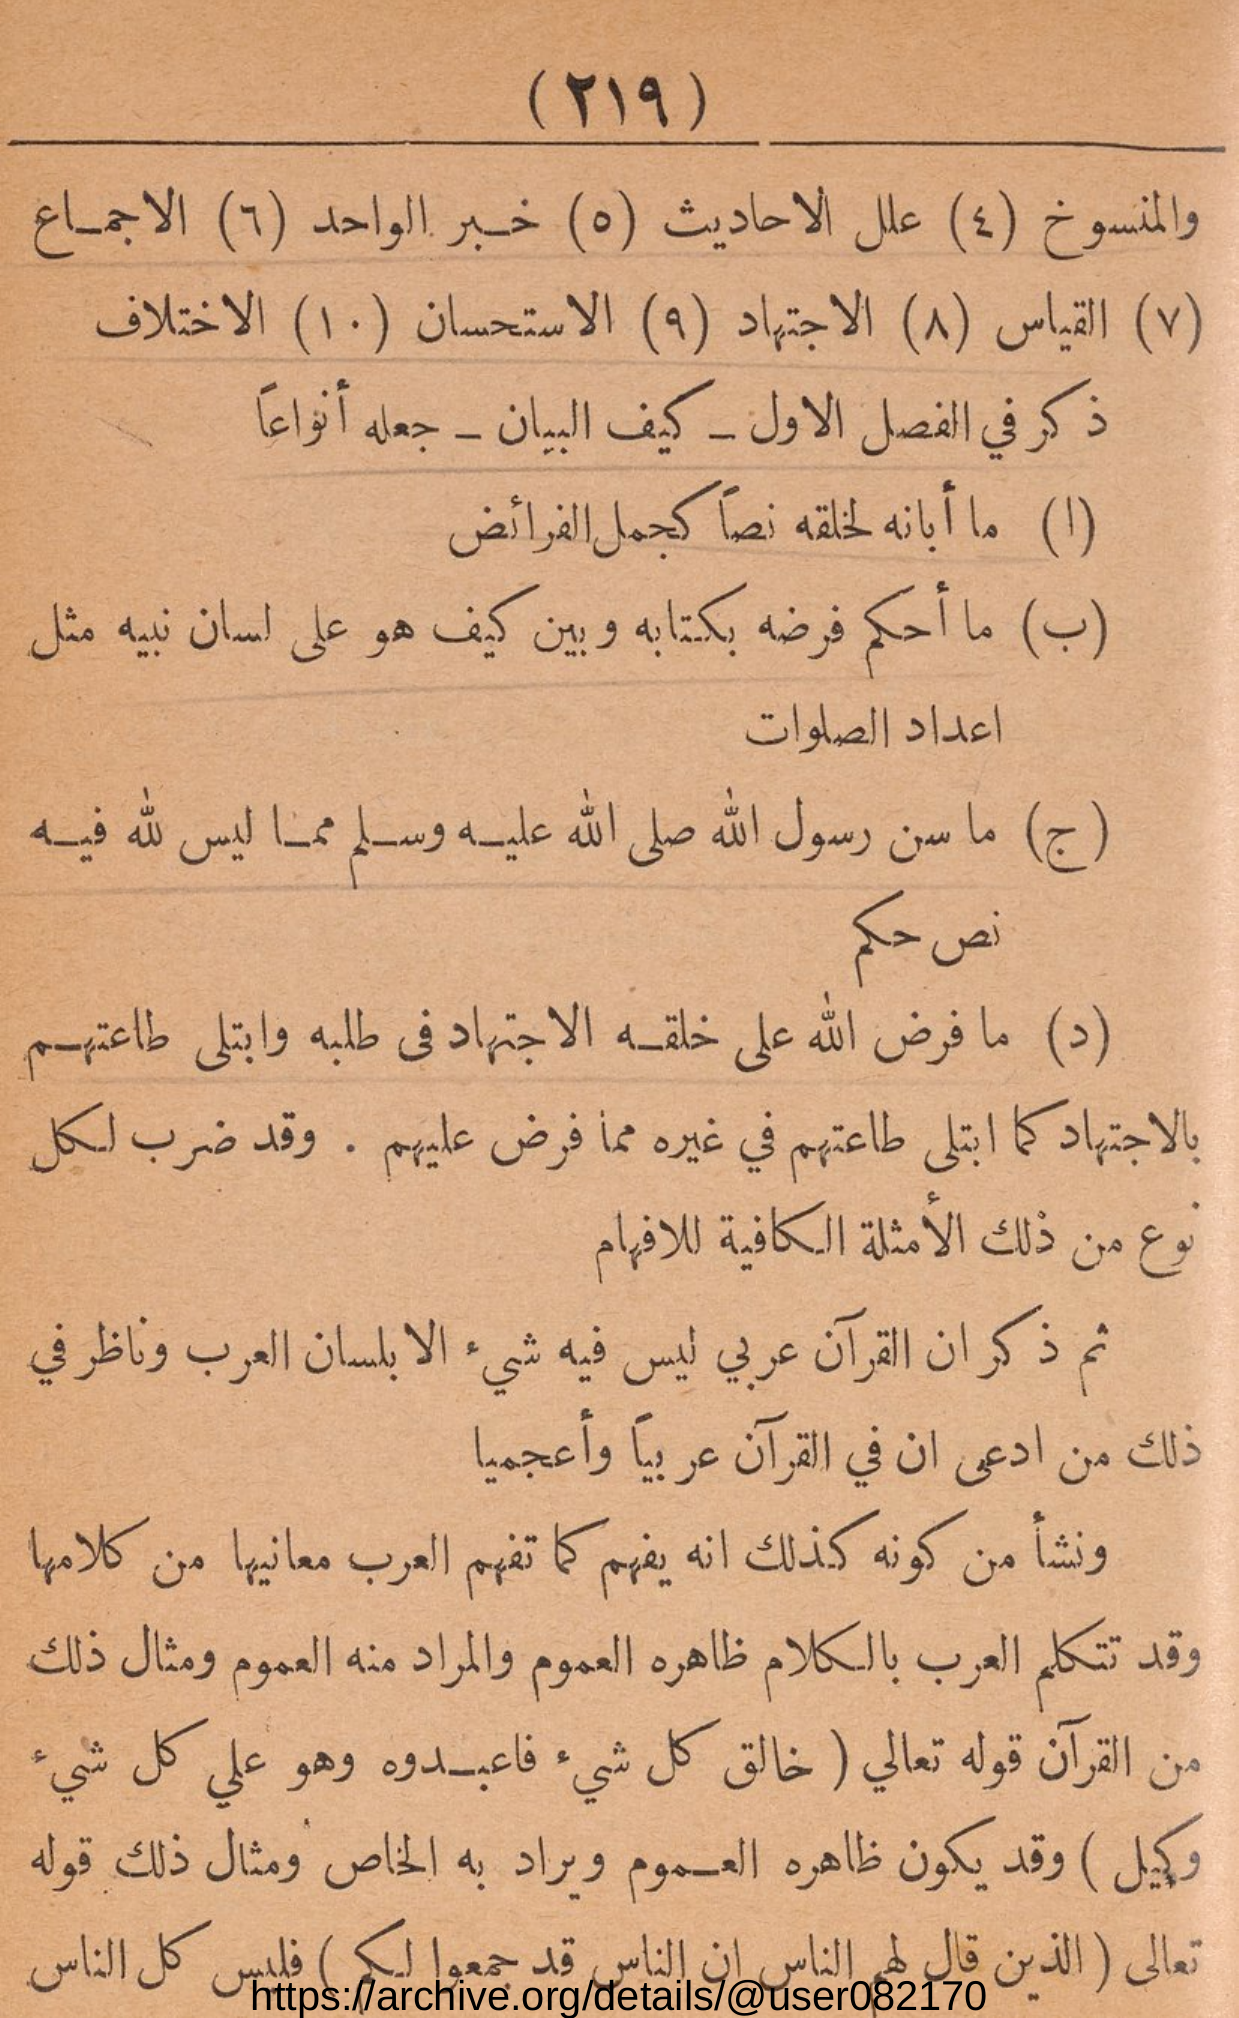 ( ٢١٩ )
والمنسوخ (٤) علل الاحاديث (٥) خبر الواحد (٦) الاجماع
(٧) القياس (٨) الاجتهاد (٩) الاستحسان (١٠) الاختلاف
ذكر في الفصل الاول ـ كيف البيان ـ جعله أنواعاً
(ا) ما أبانه لخلقه نصاً كجمل الفرائض
(ب) ما أحكم فرضه بكتابه وبين كيف هو على لسان نبيه مثل
اعداد الصلوات
(ج) ما سن رسول الله صلى الله عليه وسلم مما ليس لله فيه
نص حكم
(د) ما فرض الله على خلقه الاجتهاد فى طلبه وابتلى طاعتهم
بالاجتهاد كما ابتلى طاعتهم في غيره مما فرض عليهم . وقد ضرب لكل
نوع من ذلك الأمثلة الكافية للافهام
ثم ذكر ان القرآن عربي ليس فيه شيء الا بلسان العرب وناظر في
ذلك من ادعى ان في القرآن عربياً وأعجميا
ونشأ من كونه كذلك انه يفهم كما تفهم العرب معانيها من كلامها
وقد تتكلم العرب بالكلام ظاهره العموم والمراد منه العموم ومثال ذلك
من القرآن قوله تعالي ( خالق كل شيء فاعبدوه وهو علي كل شيء
وكيل ) وقد يكون ظاهره العموم ويراد به الخاص ومثال ذلك قوله
تعالى ( الذين قال لهم الناس ان الناس قد جمعوا لكم ) فليس كل الناس
https://archive.org/details/@user082170